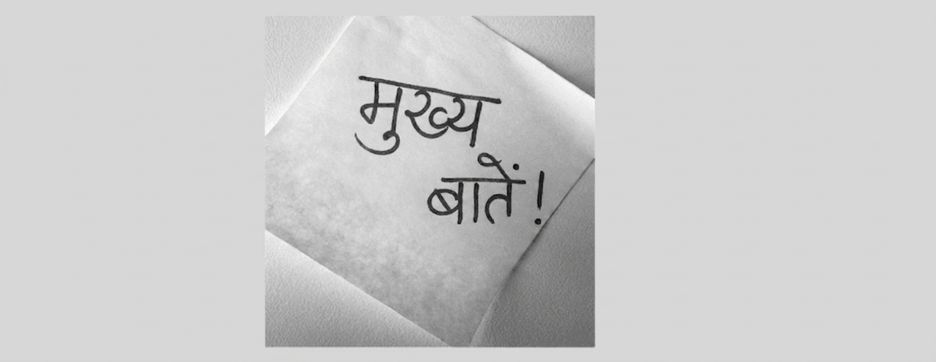 मुख्य
बातें!